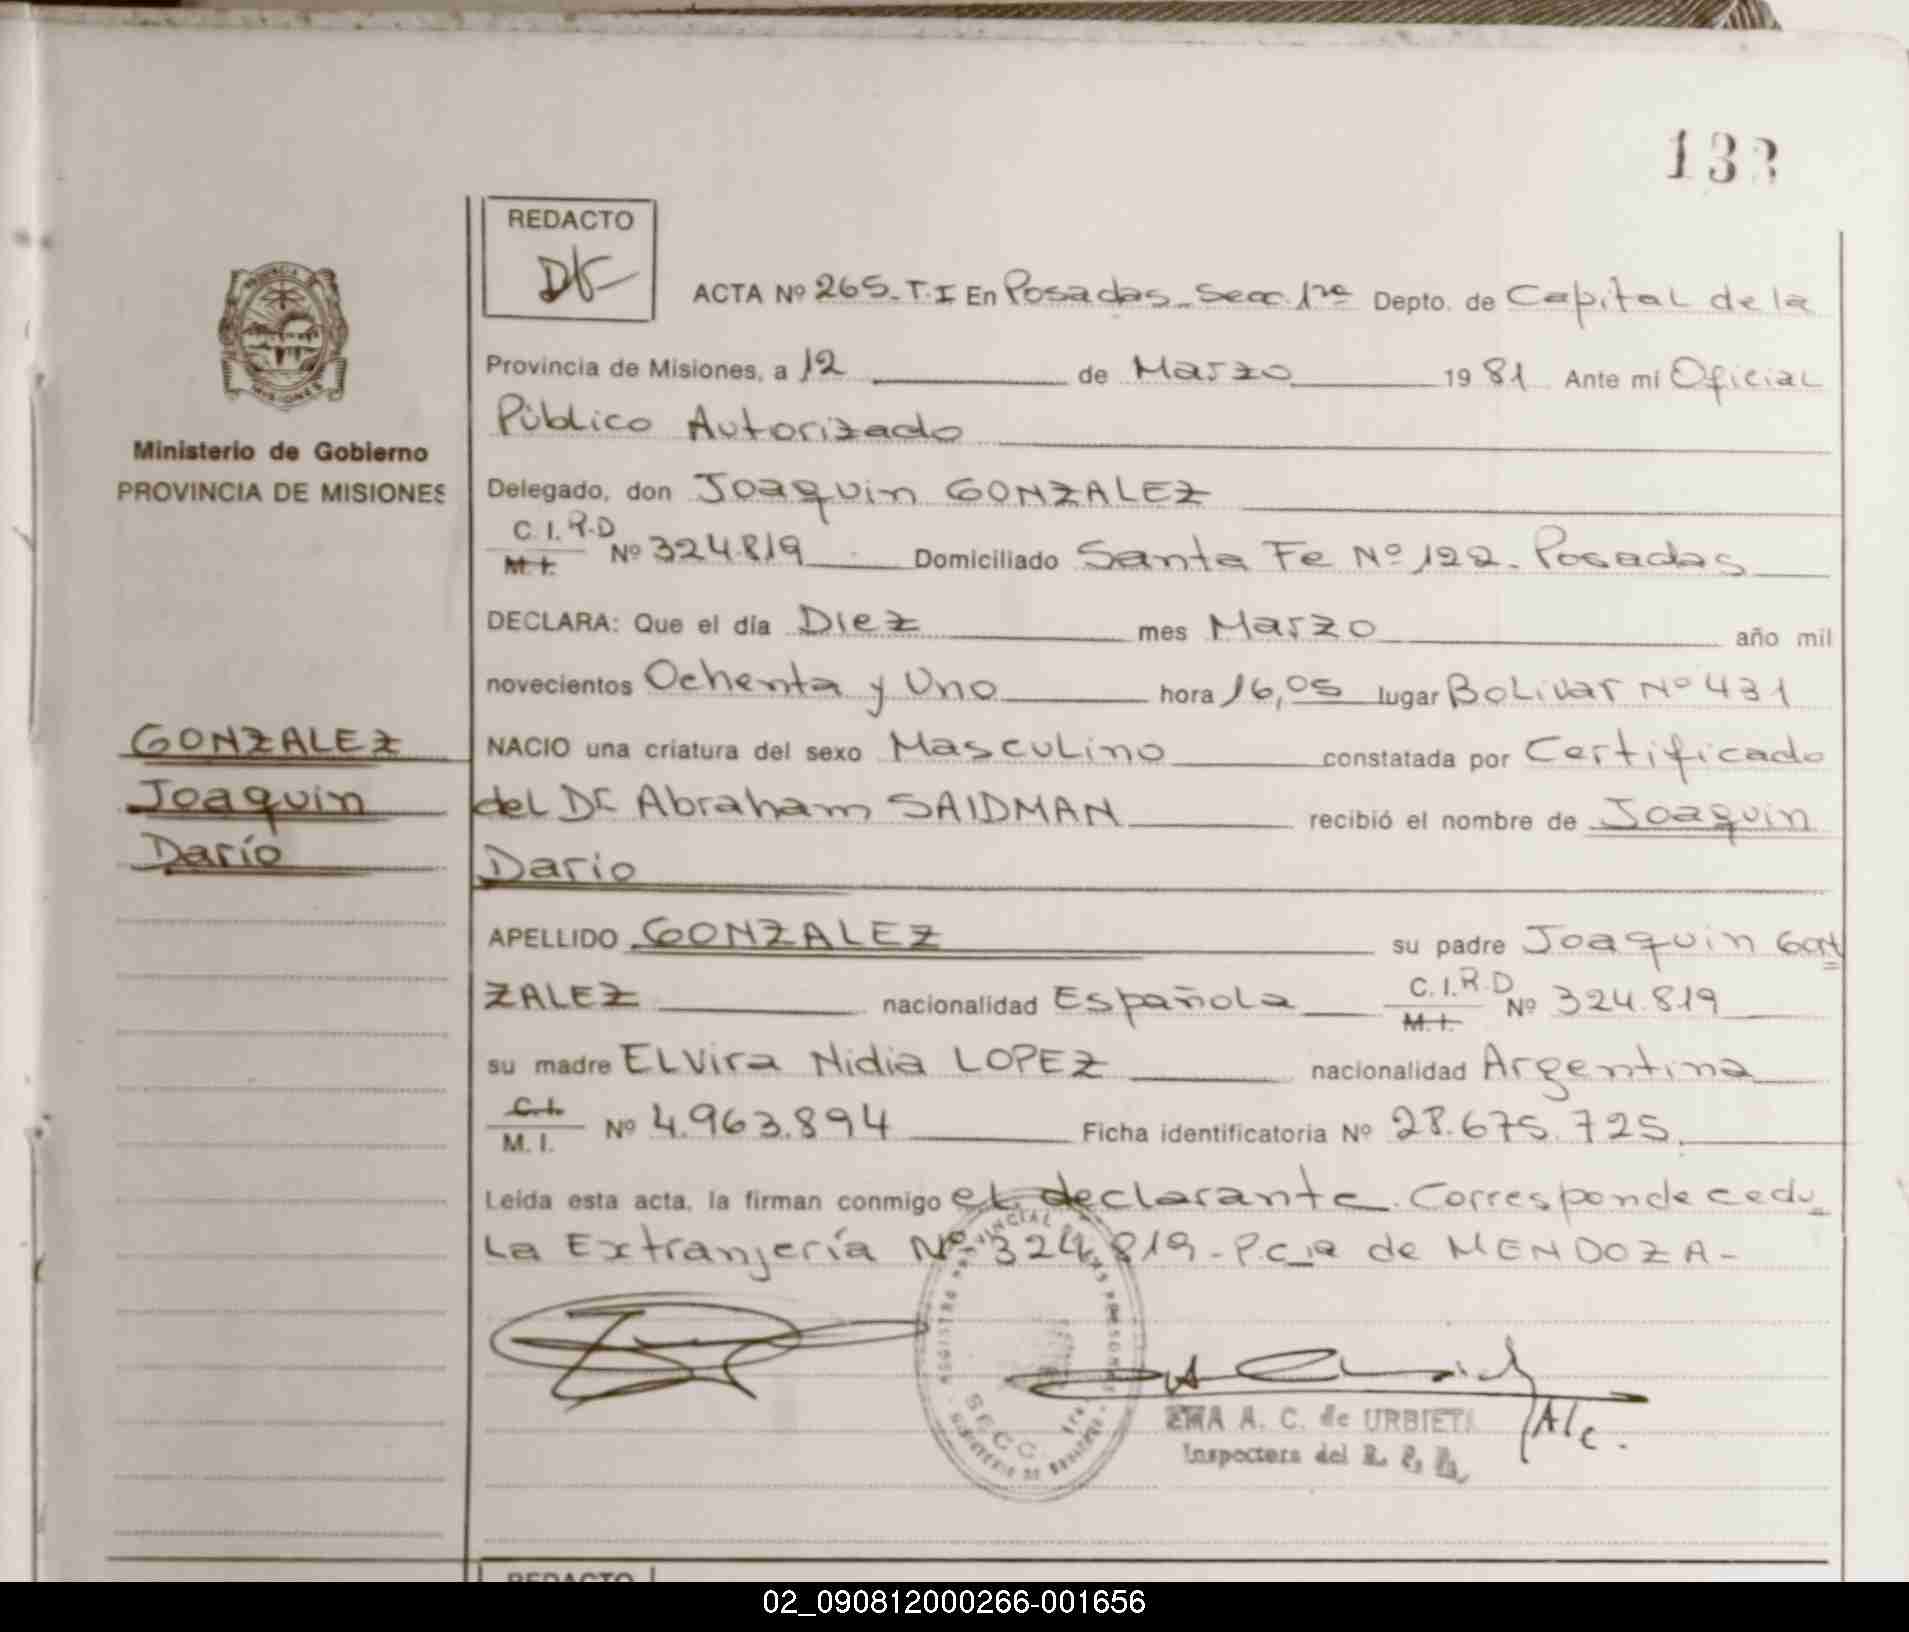 133
REDACTO
ACTA Nº 265_T.I En Posadas_Secc. 1ra Depto. de Capital de la
Provincia de Misiones, a 12 de Marzo 1981 Ante mí Oficial
Público Autorizado
Ministerio de Gobierno
PROVINCIA DE MISIONES
Delegado, don Joaquin GONZALEZ
C. I. R.D
M. I. Nº 324.819 Domiciliado Santa Fe Nº 122_ Posadas
DECLARA: Que el día Diez mes Marzo año mil
novecientos Ochenta y Uno hora 16,05 lugar Bolivar Nº 431
GONZALEZ
Joaquin
Darío
NACIO una criatura del sexo Masculino constatada por Certificado
del Dr Abraham SAIDMAN recibió el nombre de Joaquin
Dario
APELLIDO GONZALEZ su padre Joaquin Gon
ZALEZ nacionalidad Española C. I. R.D
M. I. Nº 324.819
su madre Elvira Nidia LOPEZ nacionalidad Argentina
C. I.
M. I. Nº 4.963.894 Ficha identificatoria Nº 28.675.725.
Leída esta acta, la firman conmigo el declarante. Corresponde cedu_
la Extranjería Nº 324.819_ Pcia de MENDOZA_
REGISTRO PROVINCIAL DE LAS PERSONAS
SECC. 1ra.
MINISTERIO DE GOBIERNO
A. C. de URBIETA
Inspectora del R. P. P.
REDACTO
02_090812000266-001656